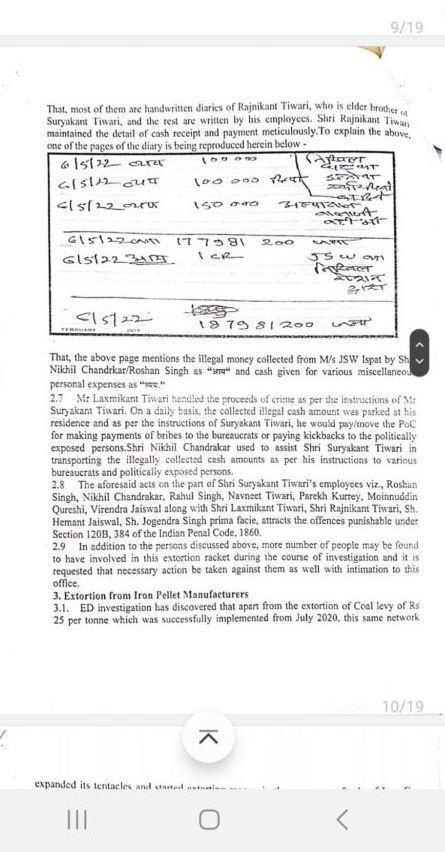 9/19
That, most of them are handwritten diaries of Rajnikant Tiwari, who is elder brother of
Suryakant Tiwari, and the rest are written by his employees. Shri Rajnikant Tiwari
maintained the detail of cash receipt and payment meticulously.To explain the above,
one of the pages of the diary is being reproduced herein below -
6/5/22 व्यय 100 000
6/5/22 व्यय 100 000
6/5/22 व्यय 150 000
6/5/22 जमा 177981 200 जमा
6/5/22 आय 1 CR JSW का
निखिल
द्वारा
6/5/22 187981200 जमा
FEBRUARY
That, the above page mentions the illegal money collected from M/s JSW Ispat by Sh
Nikhil Chandrkar/Roshan Singh as "आय" and cash given for various miscellaneou
personal expenses as "व्यय."
2.7 Mr Laxmikant Tiwari handled the proceeds of crime as per the instructions of Mr
Suryakant Tiwari. On a daily basis, the collected illegal cash amount was parked at his
residence and as per the instructions of Suryakant Tiwari, he would pay/move the PoC
for making payments of bribes to the bureaucrats or paying kickbacks to the politically
exposed persons.Shri Nikhil Chandrakar used to assist Shri Suryakant Tiwari in
transporting the illegally collected cash amounts as per his instructions to various
bureaucrats and politically exposed persons.
2.8 The aforesaid acts on the part of Shri Suryakant Tiwari's employees viz., Roshan
Singh, Nikhil Chandrakar, Rahul Singh, Navneet Tiwari, Parekh Kurrey, Moinnuddin
Qureshi, Virendra Jaiswal along with Shri Laxmikant Tiwari, Shri Rajnikant Tiwari, Sh.
Hemant Jaiswal, Sh. Jogendra Singh prima facie, attracts the offences punishable under
Section 120B, 384 of the Indian Penal Code, 1860.
2.9 In addition to the persons discussed above, more number of people may be found
to have involved in this extortion racket during the course of investigation and it is
requested that necessary action be taken against them as well with intimation to this
office.
3. Extortion from Iron Pellet Manufacturers
3.1. ED investigation has discovered that apart from the extortion of Coal levy of Rs
25 per tonne which was successfully implemented from July 2020, this same network
10/19
expanded its tentacles and started